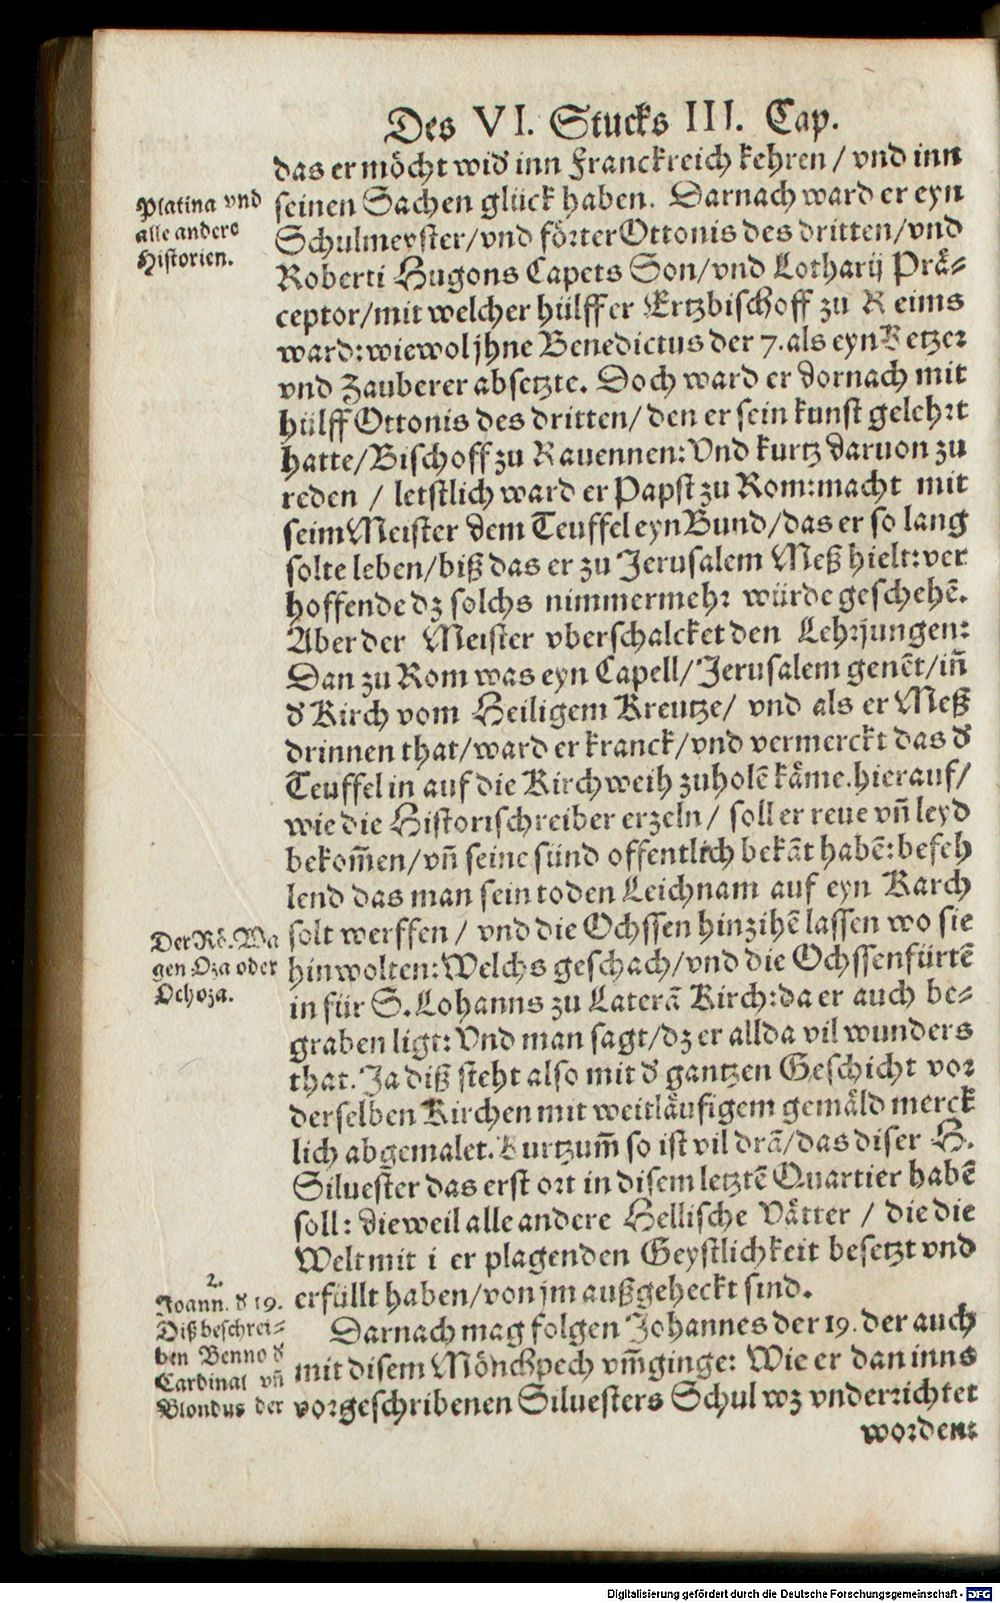 Des VI. Stucks III. Cap.
das er möcht wid̕ inn Franckreich kehren / vnd inn
seinen Sachen glück haben. Darnach ward er eyn
Schulmeyster/vnd förter Ottonis des dritten/vnd
Roberti Hugons Capets Son/vnd Lotharij Prä-
ceptor/mit welcher hülff er Ertzbischoff zu Reims
ward: wiewol jhne Benedictus der 7. als eyn Ketzer
vnd Zauberer absetzte. Doch ward er dornach mit
hülff Ottonis des dritten/ den er sein kunst gelehrt
hatte/Bischoff zu Rauennen: Vnd kurtz daruon zu
reden / letstlich ward er Papst zu Rom: macht mit
seim Meister dem Teuffel eyn Bund/das er so lang
solte leben/biß das er zu Jerusalem Meß hielt: ver
hoffende dz solchs nimmermehr würde geschehē.
Aber der Meister vberschalcket den Lehrjungen:
Dan zu Rom was eyn Capell/Jerusalem genēt/iñ
d̕ Kirch vom Heiligem Kreutze/ vnd als er Meß
drinnen that/ward er kranck/vnd vermerckt das d̕
Teuffel in auf die Kirchweih zuholē käme. hierauf/
wie die Historischreiber erzeln / soll er reue vñ leyd
bekom̄en/vñ seine sünd offentlich bekāt habē: befeh
lend das man sein toden Leichnam auf eyn Karch
solt werffen / vnd die Ochssen hinzihē lassen wo sie
hin wolten: Welchs geschach/vnd die Ochssen fürtē
in für S. Lohanns zu Laterā Kirch: da er auch be-
graben ligt: Vnd man sagt/dz er allda vil wunders
that. Ja diß steht also mit d̕ gantzen Geschicht vor
derselben Kirchen mit weitläufigem gemäld merck
lich abgemalet. Kurtzum̄ so ist vil drā/das diser H.
Siluester das erst ort in disem letztē Quartier habē
soll: dieweil alle andere Hellische Vätter / die die
Welt mit i er plagenden Geystlichkeit besetzt vnd
erfüllt haben/von jm außgeheckt sind.
Darnach mag folgen Johannes der 19. der auch
mit disem Mönchpech vm̄ginge: Wie er dan inns
vorgeschribenen Siluesters Schul wz vnderrichtet
worden:
Platina vnd
alle andere
Historien.
Der Rö. Wa
gen Oza oder
Ochoza.
2.
Joann. d̕ 19.
Diß beschrei-
ben Benno d̕
Cardinal vñ
Blondus der
Digitalisierung gefördert durch die Deutsche Forschungsgemeinschaft - DFG